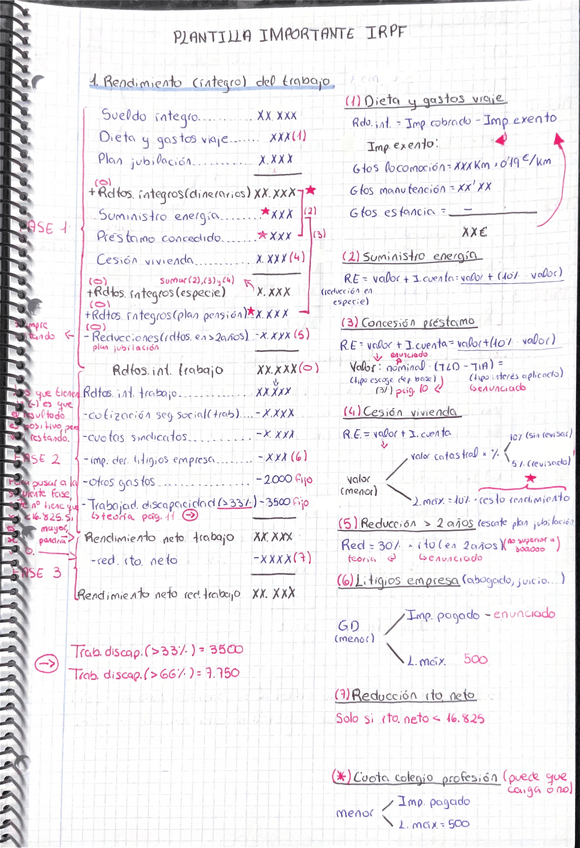 PLANTILLA IMPORTANTE IRPF
1. Rendimiento (íntegro) del trabajo
Sueldo íntegro........ XX.XXX
Dieta y gastos viaje.... XXX(1)
Plan jubilación......... X.XXX
(0)
+Rdtos. íntegros(dinerarios) XX.XXX ★
Suministro energía.... ★XXX (2)
FASE 1
Préstamo concedido... ★XXX (3)
Cesión vivienda........ X.XXX(4)
(0) Sumar(2),(3)y(4)
+Rdtos. íntegros(especie) X.XXX
(0)
+Rdtos. íntegros(plan pensión)★X.XXX
(0)
-Reducciones(rdtos. en >2años) -X.XXX(5)
plan jubilación
Rdtos. int. trabajo XX.XXX(0)
Rdtos. int. trabajo....... XX.XXX
-cotización seg social(trab) -X.XXX
-cuotas sindicatos.......... -X.XXX
FASE 2
-imp. der. litigios empresa.. -XXX(6)
-otros gastos............. -2000 Fijo
-Trabajad. discapacidad(>33%) -3500 Fijo
teoría pág. 11
Rendimiento neto trabajo XX.XXX
-red. rto. neto -XXXX(7)
FASE 3
Rendimiento neto red. trabajo XX.XXX
Trab. discap.(>33%) = 3500
Trab. discap.(>66%) = 7.750
(1) Dieta y gastos viaje
Rdo. int. = Imp cobrado - Imp. exento
Imp. exento:
Gtos locomoción = XXX Km · 0'19 €/Km
Gtos manutención = XX'XX
Gtos estancia = —
XX€
(2) Suministro energía
RE = valor + I. cuenta = valor + (10% valor)
especie)
(3) Concesión préstamo
RE = valor + I. cuenta = valor + (10% valor)
enunciado
Valor: nominal · (TLD - TIA) =
pág. 10
enunciado
(4) Cesión vivienda
R.E. = valor + I. cuenta
valor (menor)
valor catastral · %
10% (sin revisar)
5% (revisado)
L. máx. = 10% · resto rendimiento
(5) Reducción > 2 años (esante plan jubilación
Red = 30% · rto (en 2 años) (no superior a 300.000)
teoría enunciado
(6) Litigios empresa (abogado, juicio...)
GD (menor)
Imp. pagado - enunciado
L. máx. 500
(7) Reducción rto neto
Solo si rto. neto < 16.825
(★) Cuota colegio profesión (puede que caiga o no)
menor
Imp. pagado
L. máx = 500